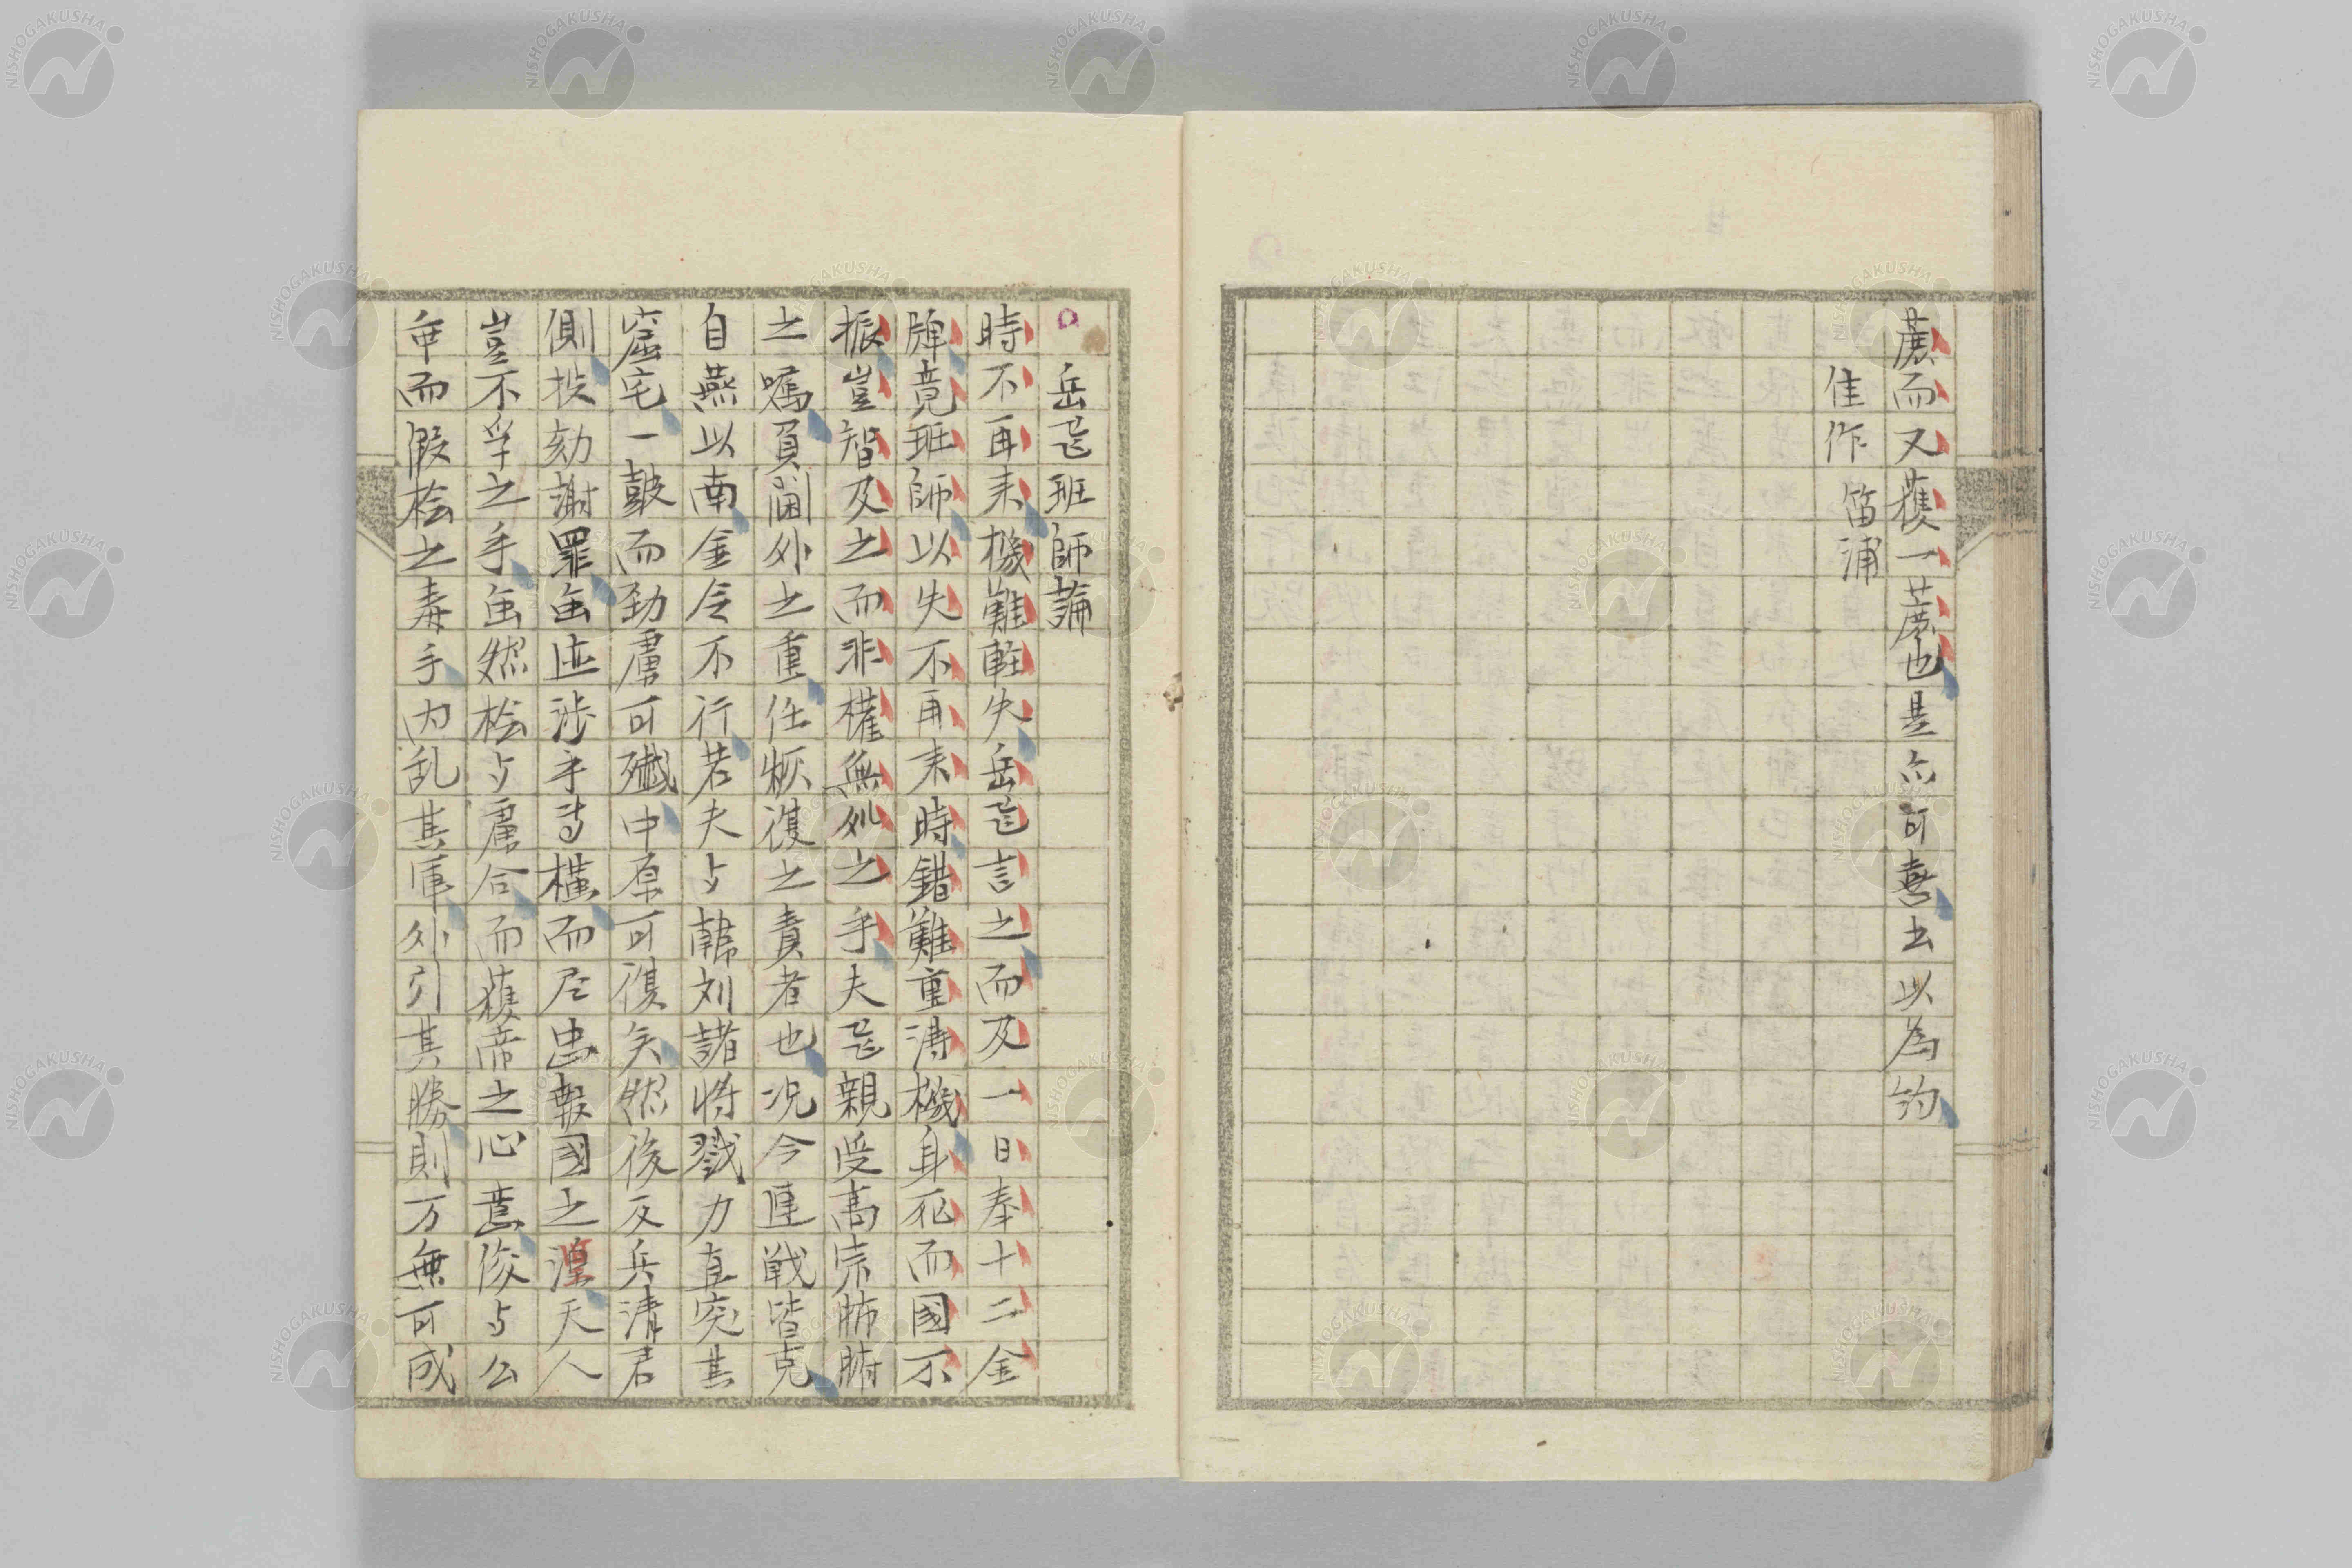 蔗而又獲一蔗也是亦可喜去以為釣
佳作 笛浦
岳飛班師論
時不再来機難軽失岳飛言之而及一日奉十二金
牌竟班師以失不再来時錯難重得機身死而國不
振豈智及之而非権無処之乎夫飛親受高宗肺腑
之嘱負閫外之重任恢復之責者也况今連戦皆克
自燕以南金令不行若夫与韓刘諸将戮力直突其
窟宅一鼓而勁虜可殱中原可復矣然後反兵清君
側投劾謝罪虽迹渉乎専横而尽忠報國之湟天人
豈不孚之乎虽然桧与虜合而獲帝之心意俊与公
年而假桧之毒手内乱其軍外引其勝則万無可成